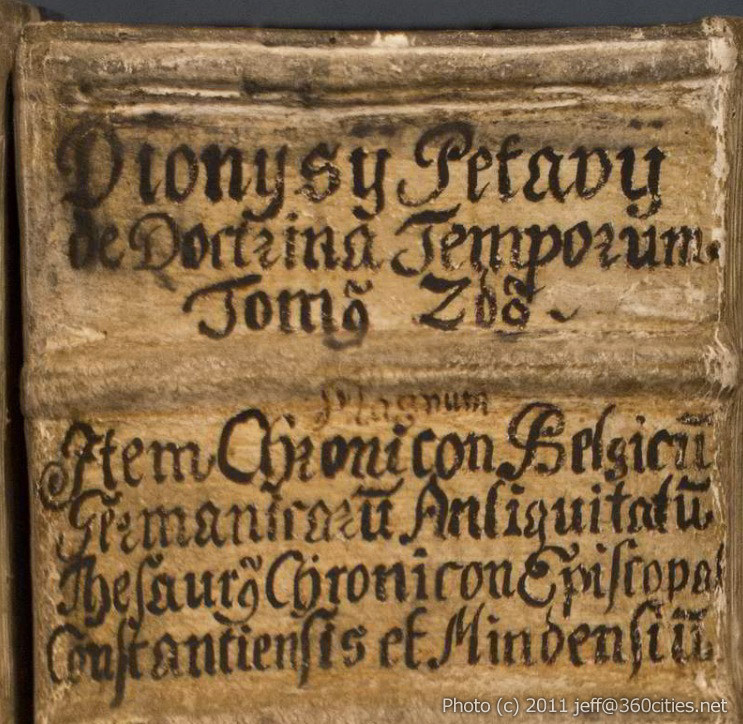 Dionysÿ Petavÿ
de Doctrinâ Temporum.
Tomꝰ 2dꝰ.
Magnum
Item Chronicon Belgicū
Germanicarū Antiquitatū
Thesaurꝰ Chronicon Episcopat
Constantiensis et Mindensiū
Photo (c) 2011 jeff@360cities.net